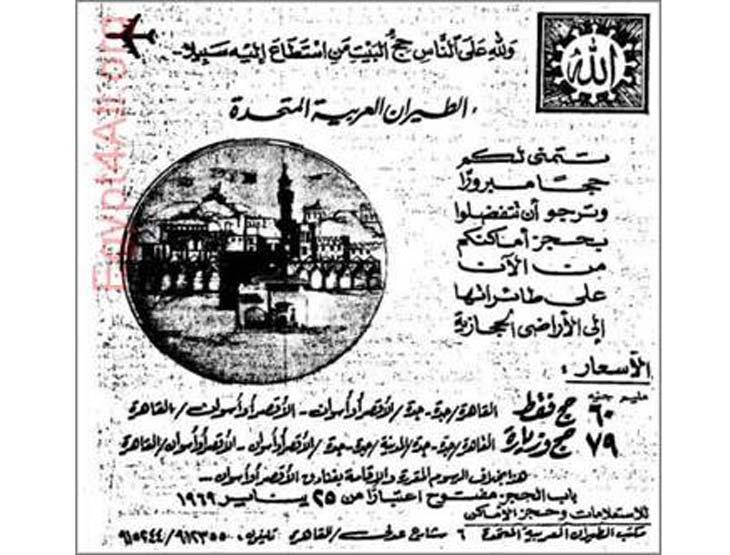 الله
ولله على الناس حج البيت من استطاع إليه سبيلا..
الطيران العربية المتحدة
تتمنى لكم
حجا مبرورا
وترجو أن تتفضلوا
بحجز أماكنكم
من الآن
على طائراتها
إلى الأراضى الحجازية
الأسعار :
مليم جنيه
٦٠ حج فقط القاهرة/جدة - جدة/الأقصر أو أسوان - الأقصر أو أسوان/القاهرة
٧٩ حج وزيارة القاهرة/جدة - جدة/المدينة/جدة - جدة/الأقصر أو أسوان - الأقصر أو أسوان/القاهرة
هذا بخلاف الرسوم المقررة والإقامة بفنادق الأقصر أو أسوان ...
باب الحجز مفتوح اعتبارًا من ٢٥ يناير ١٩٦٩
للاستعلامات وحجز الأماكن
مكتب الطيران العربية المتحدة ٦ شارع عدلى/القاهرة تليفون،
Egypt4All.org